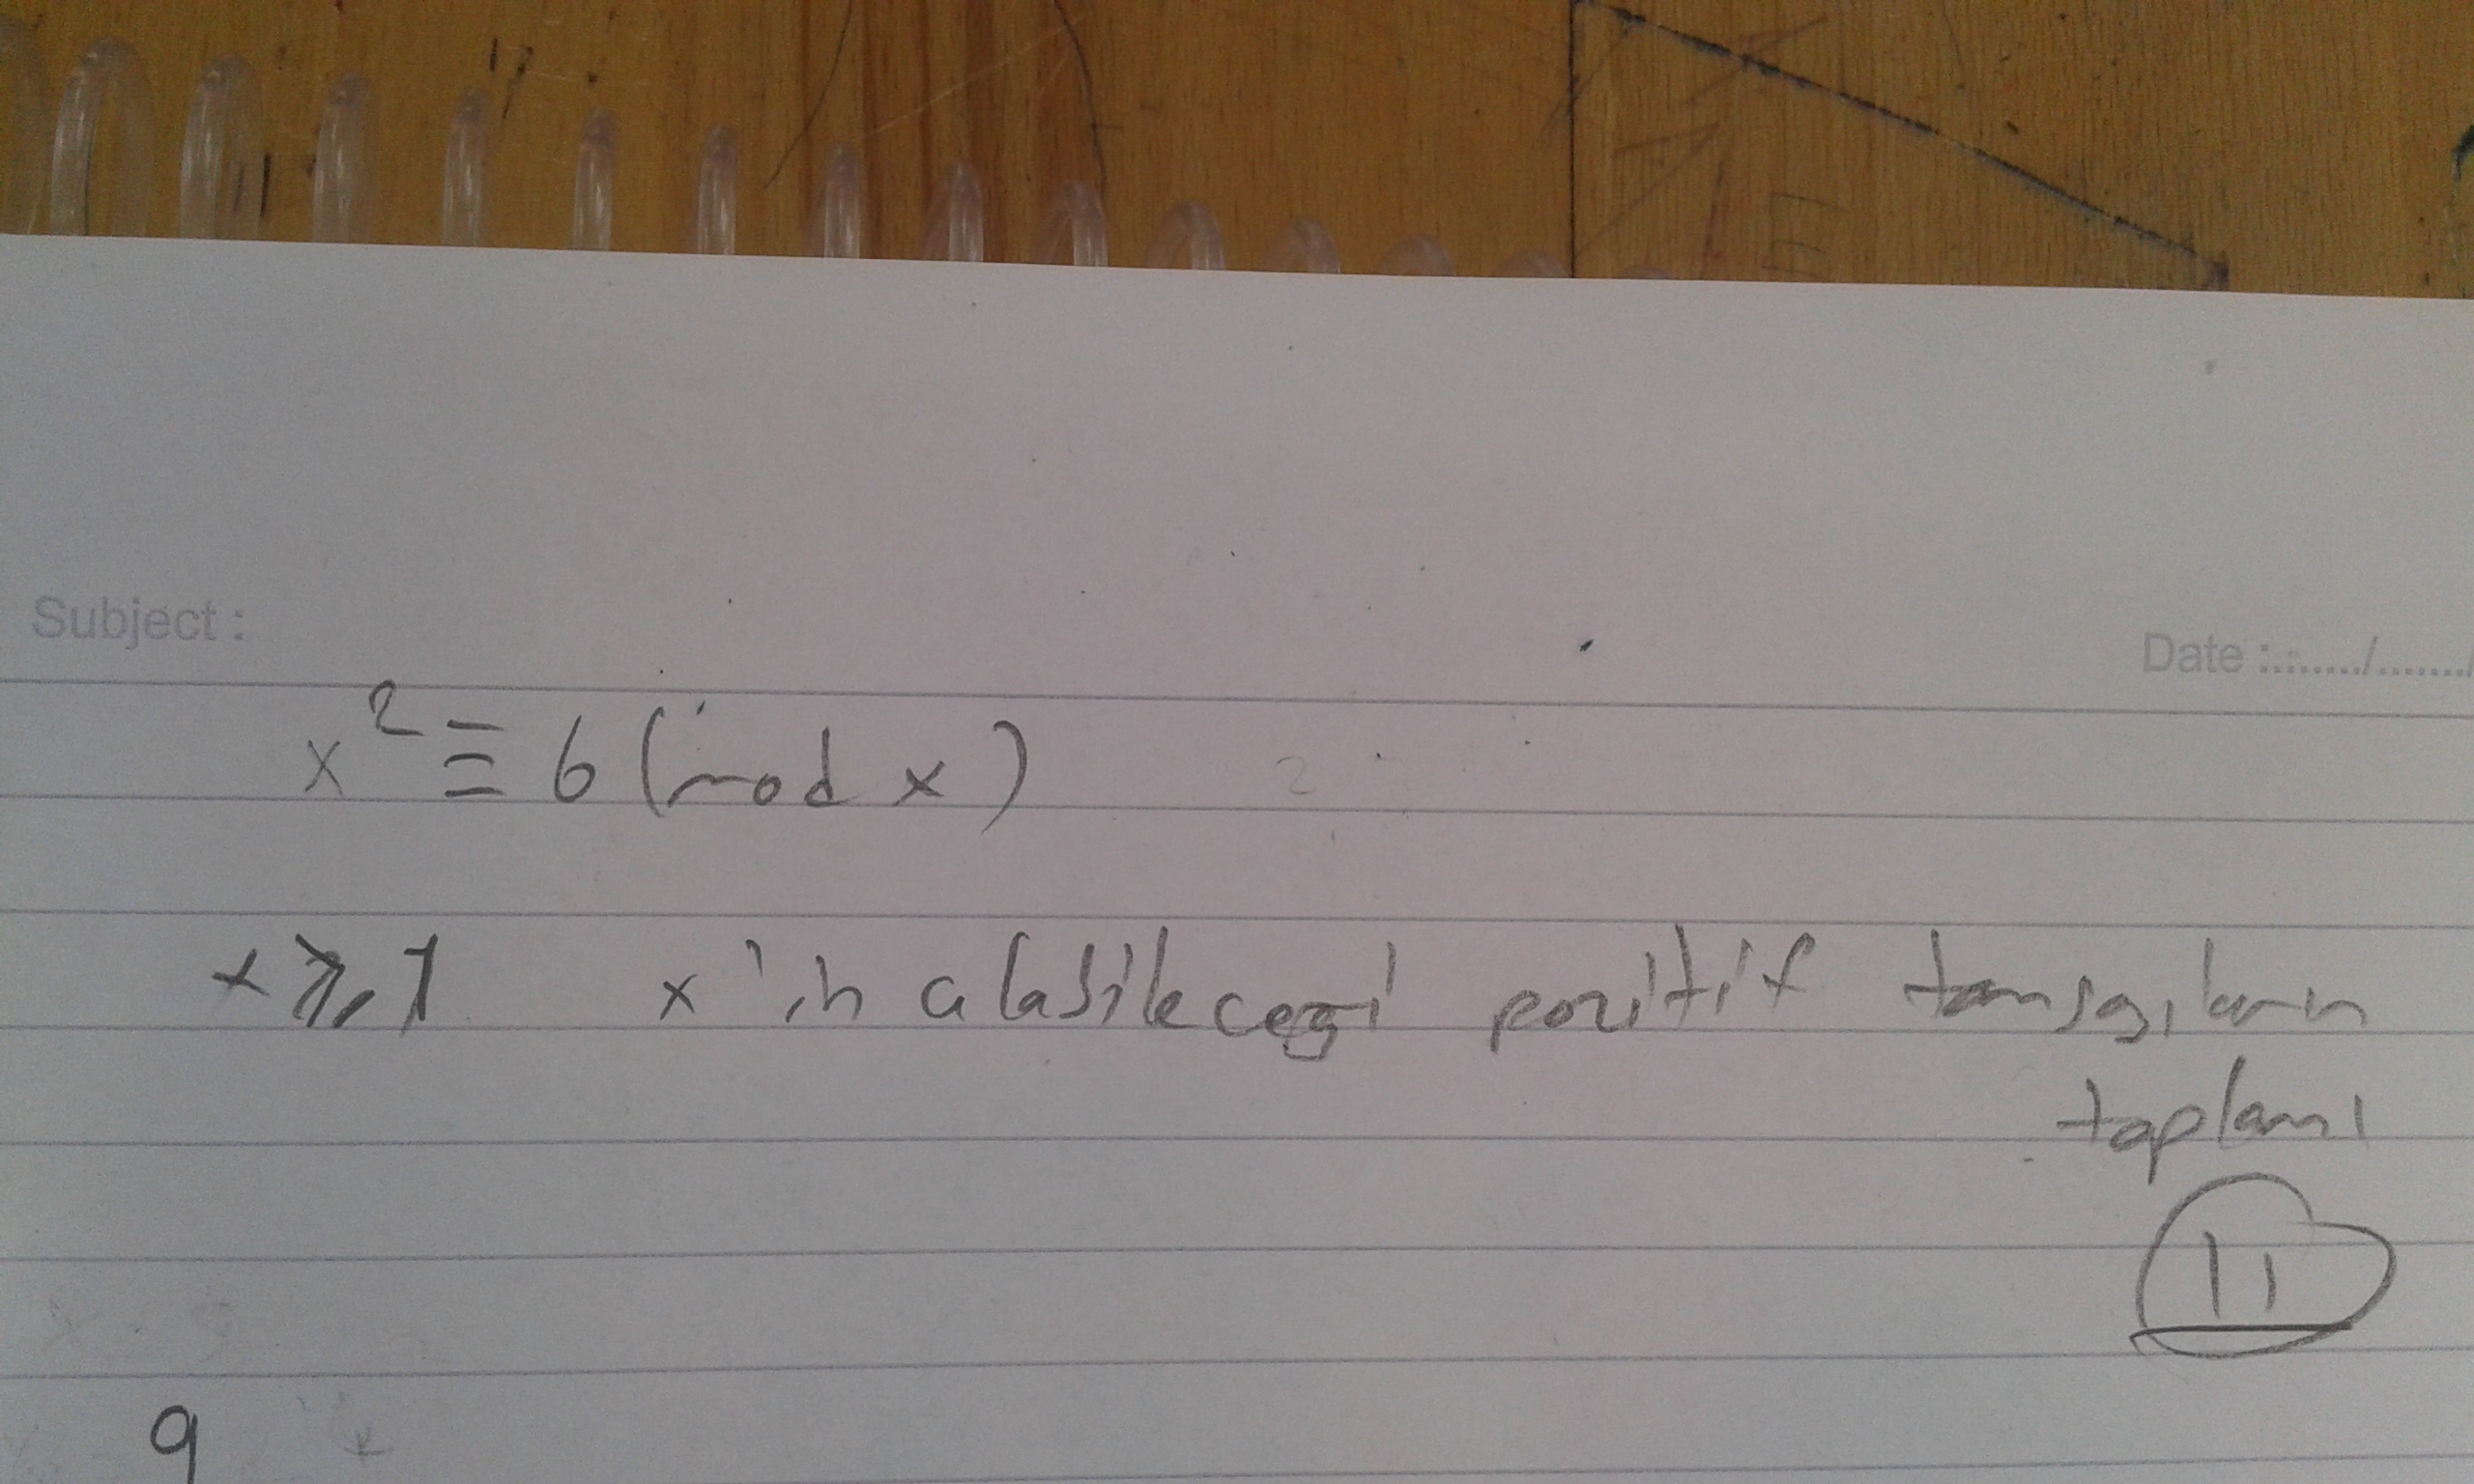 Subject :
Date :......../......../
x² ≡ 6 (mod x)
x ≥ 1 x'in alabileceği pozitif tamsayıların
toplamı
11
9